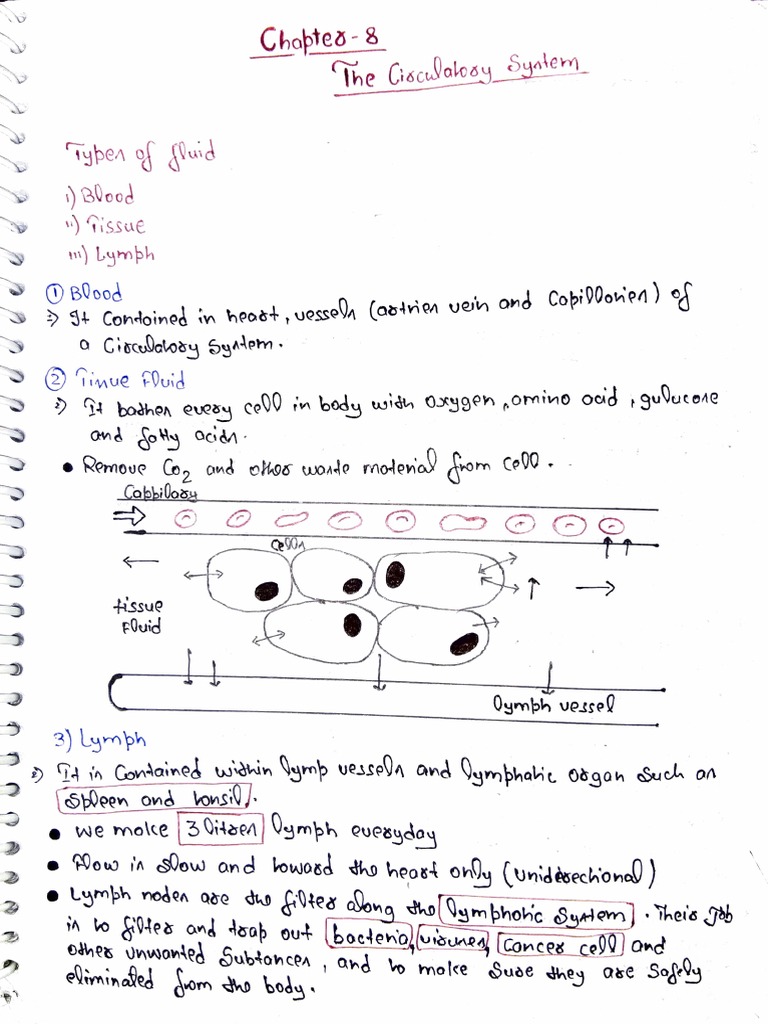 Chapter-8
The Circulatory System
Types of fluid
i) Blood
ii) Tissue
iii) Lymph
① Blood
⇒ It Contained in heart, vessels (artries vein and Capillaries) of
a Circulatory System.
② Tissue Fluid
⇒ It bathes every cell in body with oxygen, amino acid, gulucose
and fatty acids.
• Remove CO2 and other waste material from cell.
Cappilary
cells
tissue
fluid
lymph vessel
3) Lymph
⇒ It is Contained within lymp vessels and lymphatic organ such as
Spleen and tonsil.
• We make 3 litres lymph everyday
• Flow is slow and toward the heart only (unidirectional)
• Lymph nodes are the filter along the lymphatic System. Their Job
is to filter and trap out bacteria, viruses, Cancer cell and
other unwanted Substances, and to make Sure they are Safely
eliminated from the body.